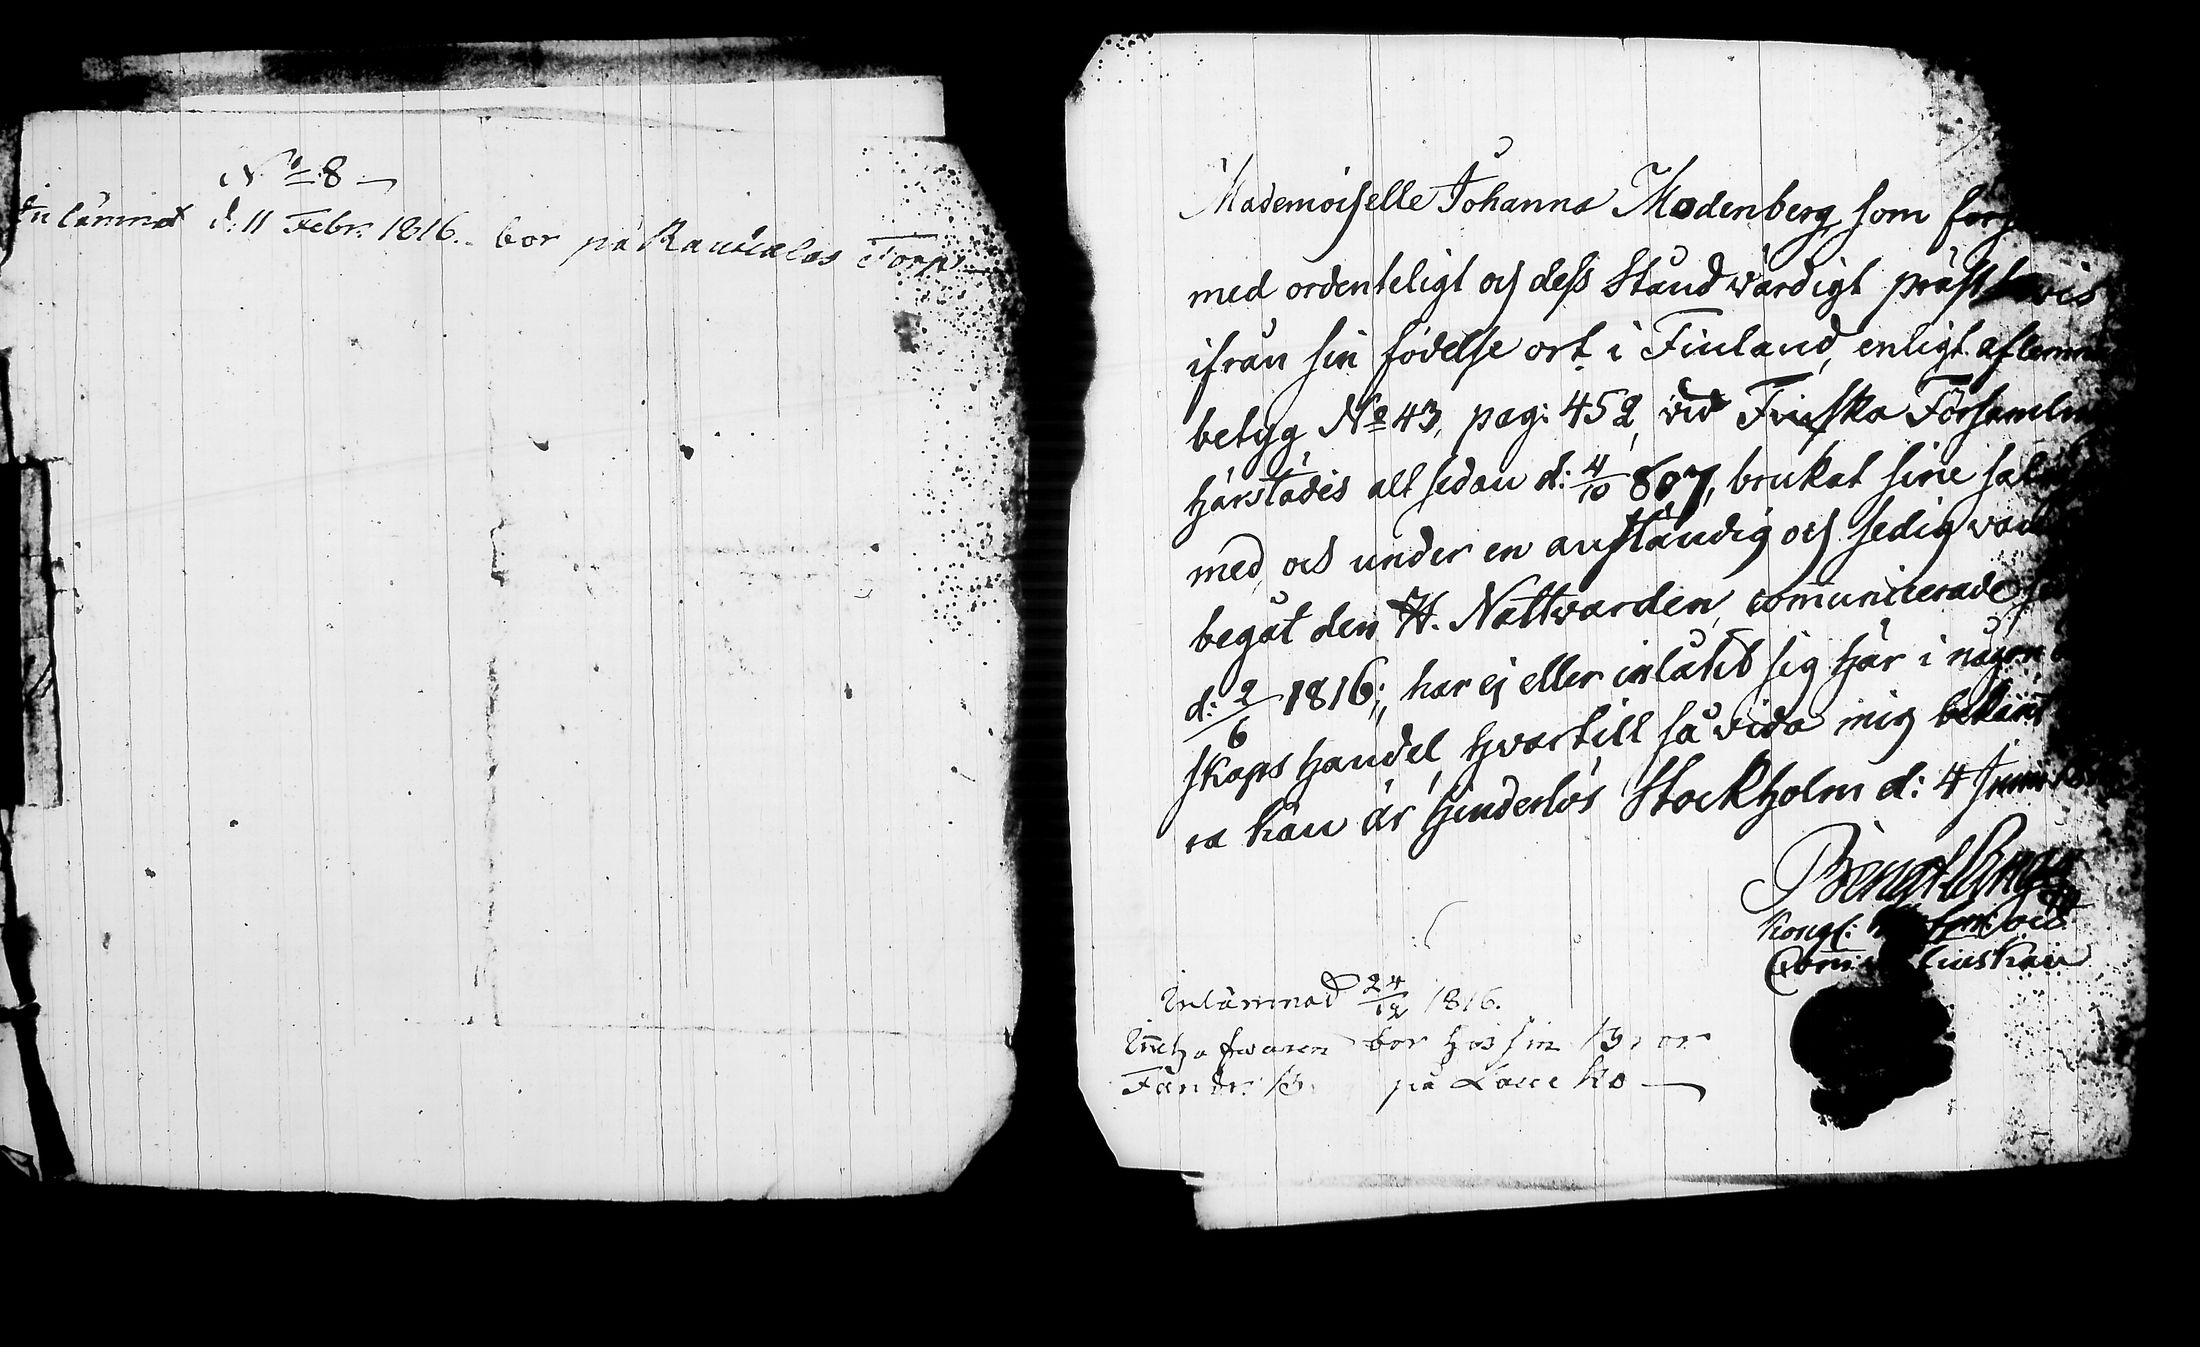 No 8
Inlämnat d: 11 Febr. 1816. bor på Torp
Mademoiselle Johanna Modenberg, som
med ordenteligt och dess Stånd värdigt
ifrån sin födelse ort i Finland, enligt aflemn
betyg No 43, pag: 452, vid Finska Församlin
härstädes alt sedan d: 4/10 807, brukat sine
med, och under en anständig och sedig
begåt den H. Nattvarden, communicerade
d: 2/6 1816; har ej eller inlåtit sig här i någon
skaps handel, hvartill så vida mig bekant
ra kan är hinderlös Stockholm d: 4 Junii
Bengt
Kongl:
Inlämnad 24/12 1816.
Innehafwaren bor hos sin Bror
Fändr. B. på